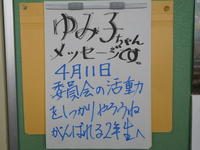 ゆみ子ちゃん
メッセージです。
4月11日
委員会の活動
をしっかりやろうね
がんばれる2年生へ